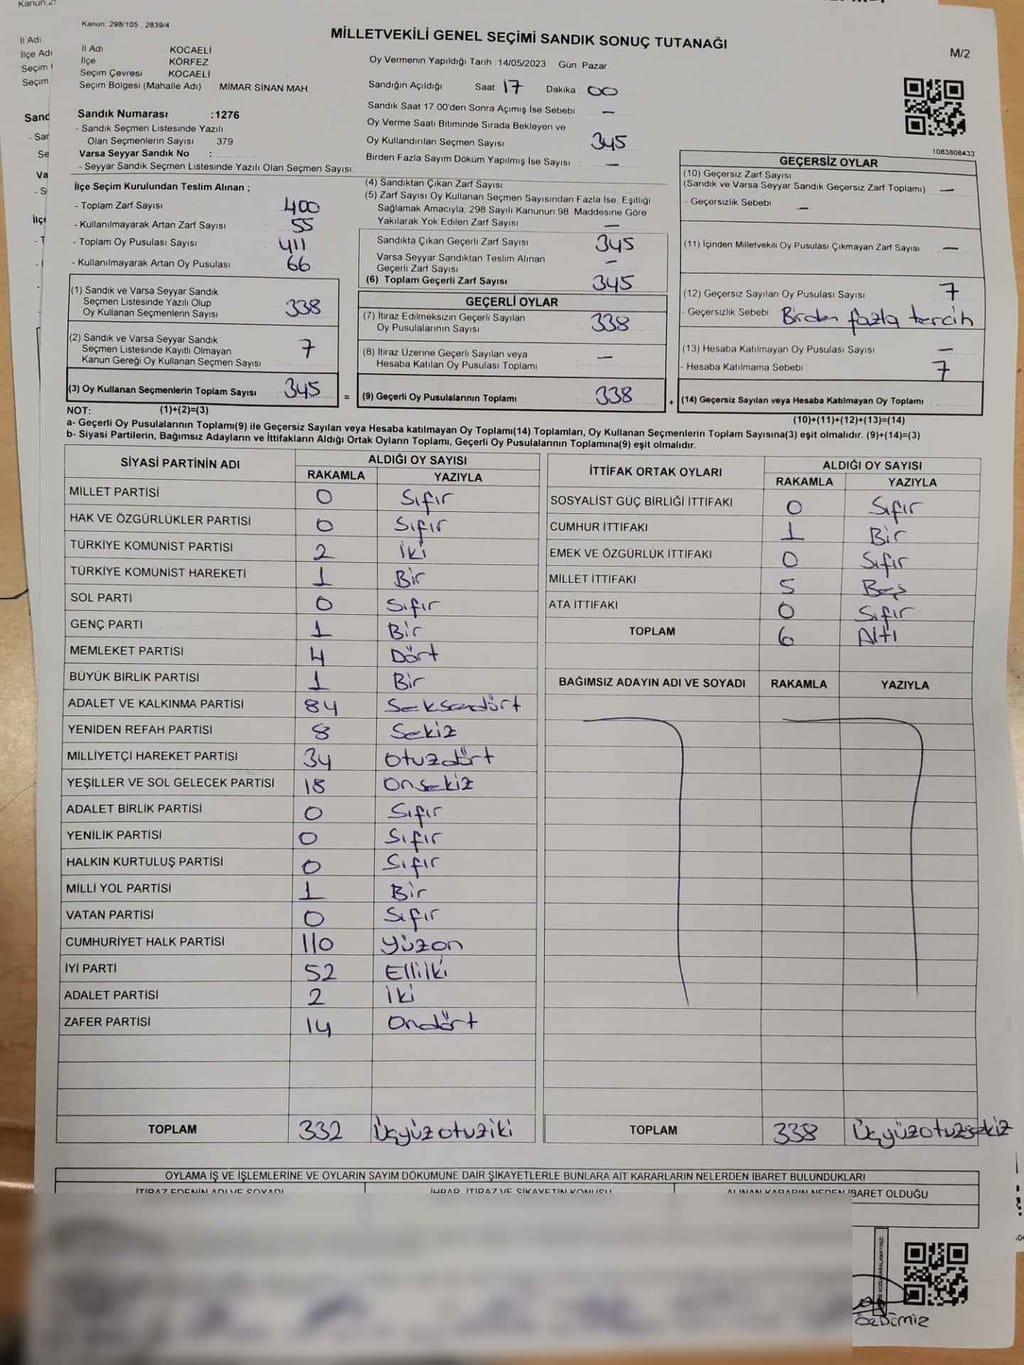 Kanun: 298/105 , 2839/4
MİLLETVEKİLİ GENEL SEÇİMİ SANDIK SONUÇ TUTANAĞI
M/2
İl Adı KOCAELİ
İlçe KÖRFEZ
Seçim Çevresi KOCAELİ
Seçim Bölgesi (Mahalle Adı) MİMAR SİNAN MAH.
Sandık Numarası :1276
- Sandık Seçmen Listesinde Yazılı
Olan Seçmenlerin Sayısı : 379
Varsa Seyyar Sandık No :
- Seyyar Sandık Seçmen Listesinde Yazılı Olan Seçmen Sayısı:
Oy Vermenin Yapıldığı Tarih :14/05/2023 Gün: Pazar
Sandığın Açıldığı Saat 17 Dakika 00
Sandık Saat 17:00'den Sonra Açımış İse Sebebi —
Oy Verme Saati Bitiminde Sırada Bekleyen ve
Oy Kullandırılan Seçmen Sayısı 345
Birden Fazla Sayım Döküm Yapılmış İse Sayısı —
1083808433
İlçe Seçim Kurulundan Teslim Alınan ;
- Toplam Zarf Sayısı 400
- Kullanılmayarak Artan Zarf Sayısı 55
- Toplam Oy Pusulası Sayısı 411
- Kullanılmayarak Artan Oy Pusulası 66
(1) Sandık ve Varsa Seyyar Sandık
Seçmen Listesinde Yazılı Olup
Oy Kullanan Seçmenlerin Sayısı 338
(2) Sandık ve Varsa Seyyar Sandık
Seçmen Listesinde Kayıtlı Olmayan
Kanun Gereği Oy Kullanan Seçmen Sayısı 7
(3) Oy Kullanan Seçmenlerin Toplam Sayısı 345 =
(4) Sandıktan Çıkan Zarf Sayısı
(5) Zarf Sayısı Oy Kullanan Seçmen Sayısından Fazla İse, Eşitliği
Sağlamak Amacıyla, 298 Sayılı Kanunun 98. Maddesine Göre
Yakılarak Yok Edilen Zarf Sayısı —
Sandıkta Çıkan Geçerli Zarf Sayısı 345
Varsa Seyyar Sandıktan Teslim Alınan
Geçerli Zarf Sayısı —
(6) Toplam Geçerli Zarf Sayısı 345
GEÇERLİ OYLAR
(7) İtiraz Edilmeksizin Geçerli Sayılan
Oy Pusulalarının Sayısı 338
(8) İtiraz Üzerine Geçerli Sayılan veya
Hesaba Katılan Oy Pusulası Toplamı —
(9) Geçerli Oy Pusulalarının Toplamı 338 +
GEÇERSİZ OYLAR
(10) Geçersiz Zarf Sayısı
(Sandık ve Varsa Seyyar Sandık Geçersiz Zarf Toplamı) —
- Geçersizlik Sebebi : —
(11) İçinden Milletvekili Oy Pusulası Çıkmayan Zarf Sayısı —
(12) Geçersiz Sayılan Oy Pusulası Sayısı 7
- Geçersizlik Sebebi : Birden fazla tercih
(13) Hesaba Katılmayan Oy Pusulası Sayısı —
- Hesaba Katılmama Sebebi 7
(14) Geçersiz Sayılan veya Hesaba Katılmayan Oy Toplamı
NOT: (1)+(2)=(3) (10)+(11)+(12)+(13)=(14)
a- Geçerli Oy Pusulalarının Toplamı(9) ile Geçersiz Sayılan veya Hesaba katılmayan Oy Toplamı(14) Toplamları, Oy Kullanan Seçmenlerin Toplam Sayısına(3) eşit olmalıdır. (9)+(14)=(3)
b- Siyasi Partilerin, Bağımsız Adayların ve İttifakların Aldığı Ortak Oyların Toplamı, Geçerli Oy Pusulalarının Toplamına(9) eşit olmalıdır.
SİYASİ PARTİNİN ADI ALDIĞI OY SAYISI
RAKAMLA YAZIYLA
MİLLET PARTİSİ 0 Sıfır
HAK VE ÖZGÜRLÜKLER PARTİSİ 0 Sıfır
TÜRKİYE KOMÜNİST PARTİSİ 2 İki
TÜRKİYE KOMÜNİST HAREKETİ 1 Bir
SOL PARTİ 0 Sıfır
GENÇ PARTİ 1 Bir
MEMLEKET PARTİSİ 4 Dört
BÜYÜK BİRLİK PARTİSİ 1 Bir
ADALET VE KALKINMA PARTİSİ 84 Seksendört
YENİDEN REFAH PARTİSİ 8 Sekiz
MİLLİYETÇİ HAREKET PARTİSİ 34 Otuzdört
YEŞİLLER VE SOL GELECEK PARTİSİ 18 Onsekiz
ADALET BİRLİK PARTİSİ 0 Sıfır
YENİLİK PARTİSİ 0 Sıfır
HALKIN KURTULUŞ PARTİSİ 0 Sıfır
MİLLİ YOL PARTİSİ 1 Bir
VATAN PARTİSİ 0 Sıfır
CUMHURİYET HALK PARTİSİ 110 Yüzon
İYİ PARTİ 52 Elliİki
ADALET PARTİSİ 2 İki
ZAFER PARTİSİ 14 Ondört
TOPLAM 332 Üçyüzotuziki
İTTİFAK ORTAK OYLARI ALDIĞI OY SAYISI
RAKAMLA YAZIYLA
SOSYALİST GÜÇ BİRLİĞİ İTTİFAKI 0 Sıfır
CUMHUR İTTİFAKI 1 Bir
EMEK VE ÖZGÜRLÜK İTTİFAKI 0 Sıfır
MİLLET İTTİFAKI 5 Beş
ATA İTTİFAKI 0 Sıfır
TOPLAM 6 Altı
BAĞIMSIZ ADAYIN ADI VE SOYADI RAKAMLA YAZIYLA
TOPLAM 338 Üçyüzotuzsekiz
OYLAMA İŞ VE İŞLEMLERİNE VE OYLARIN SAYIM DÖKÜMÜNE DAİR ŞİKAYETLERLE BUNLARA AİT KARARLARIN NELERDEN İBARET BULUNDUKLARI
İTİRAZ EDENİN ADI VE SOYADI İHBAR, İTİRAZ VE ŞİKAYETİN KONUSU ALINAN KARARIN NEDEN İBARET OLDUĞU
ÖZDEMİZ